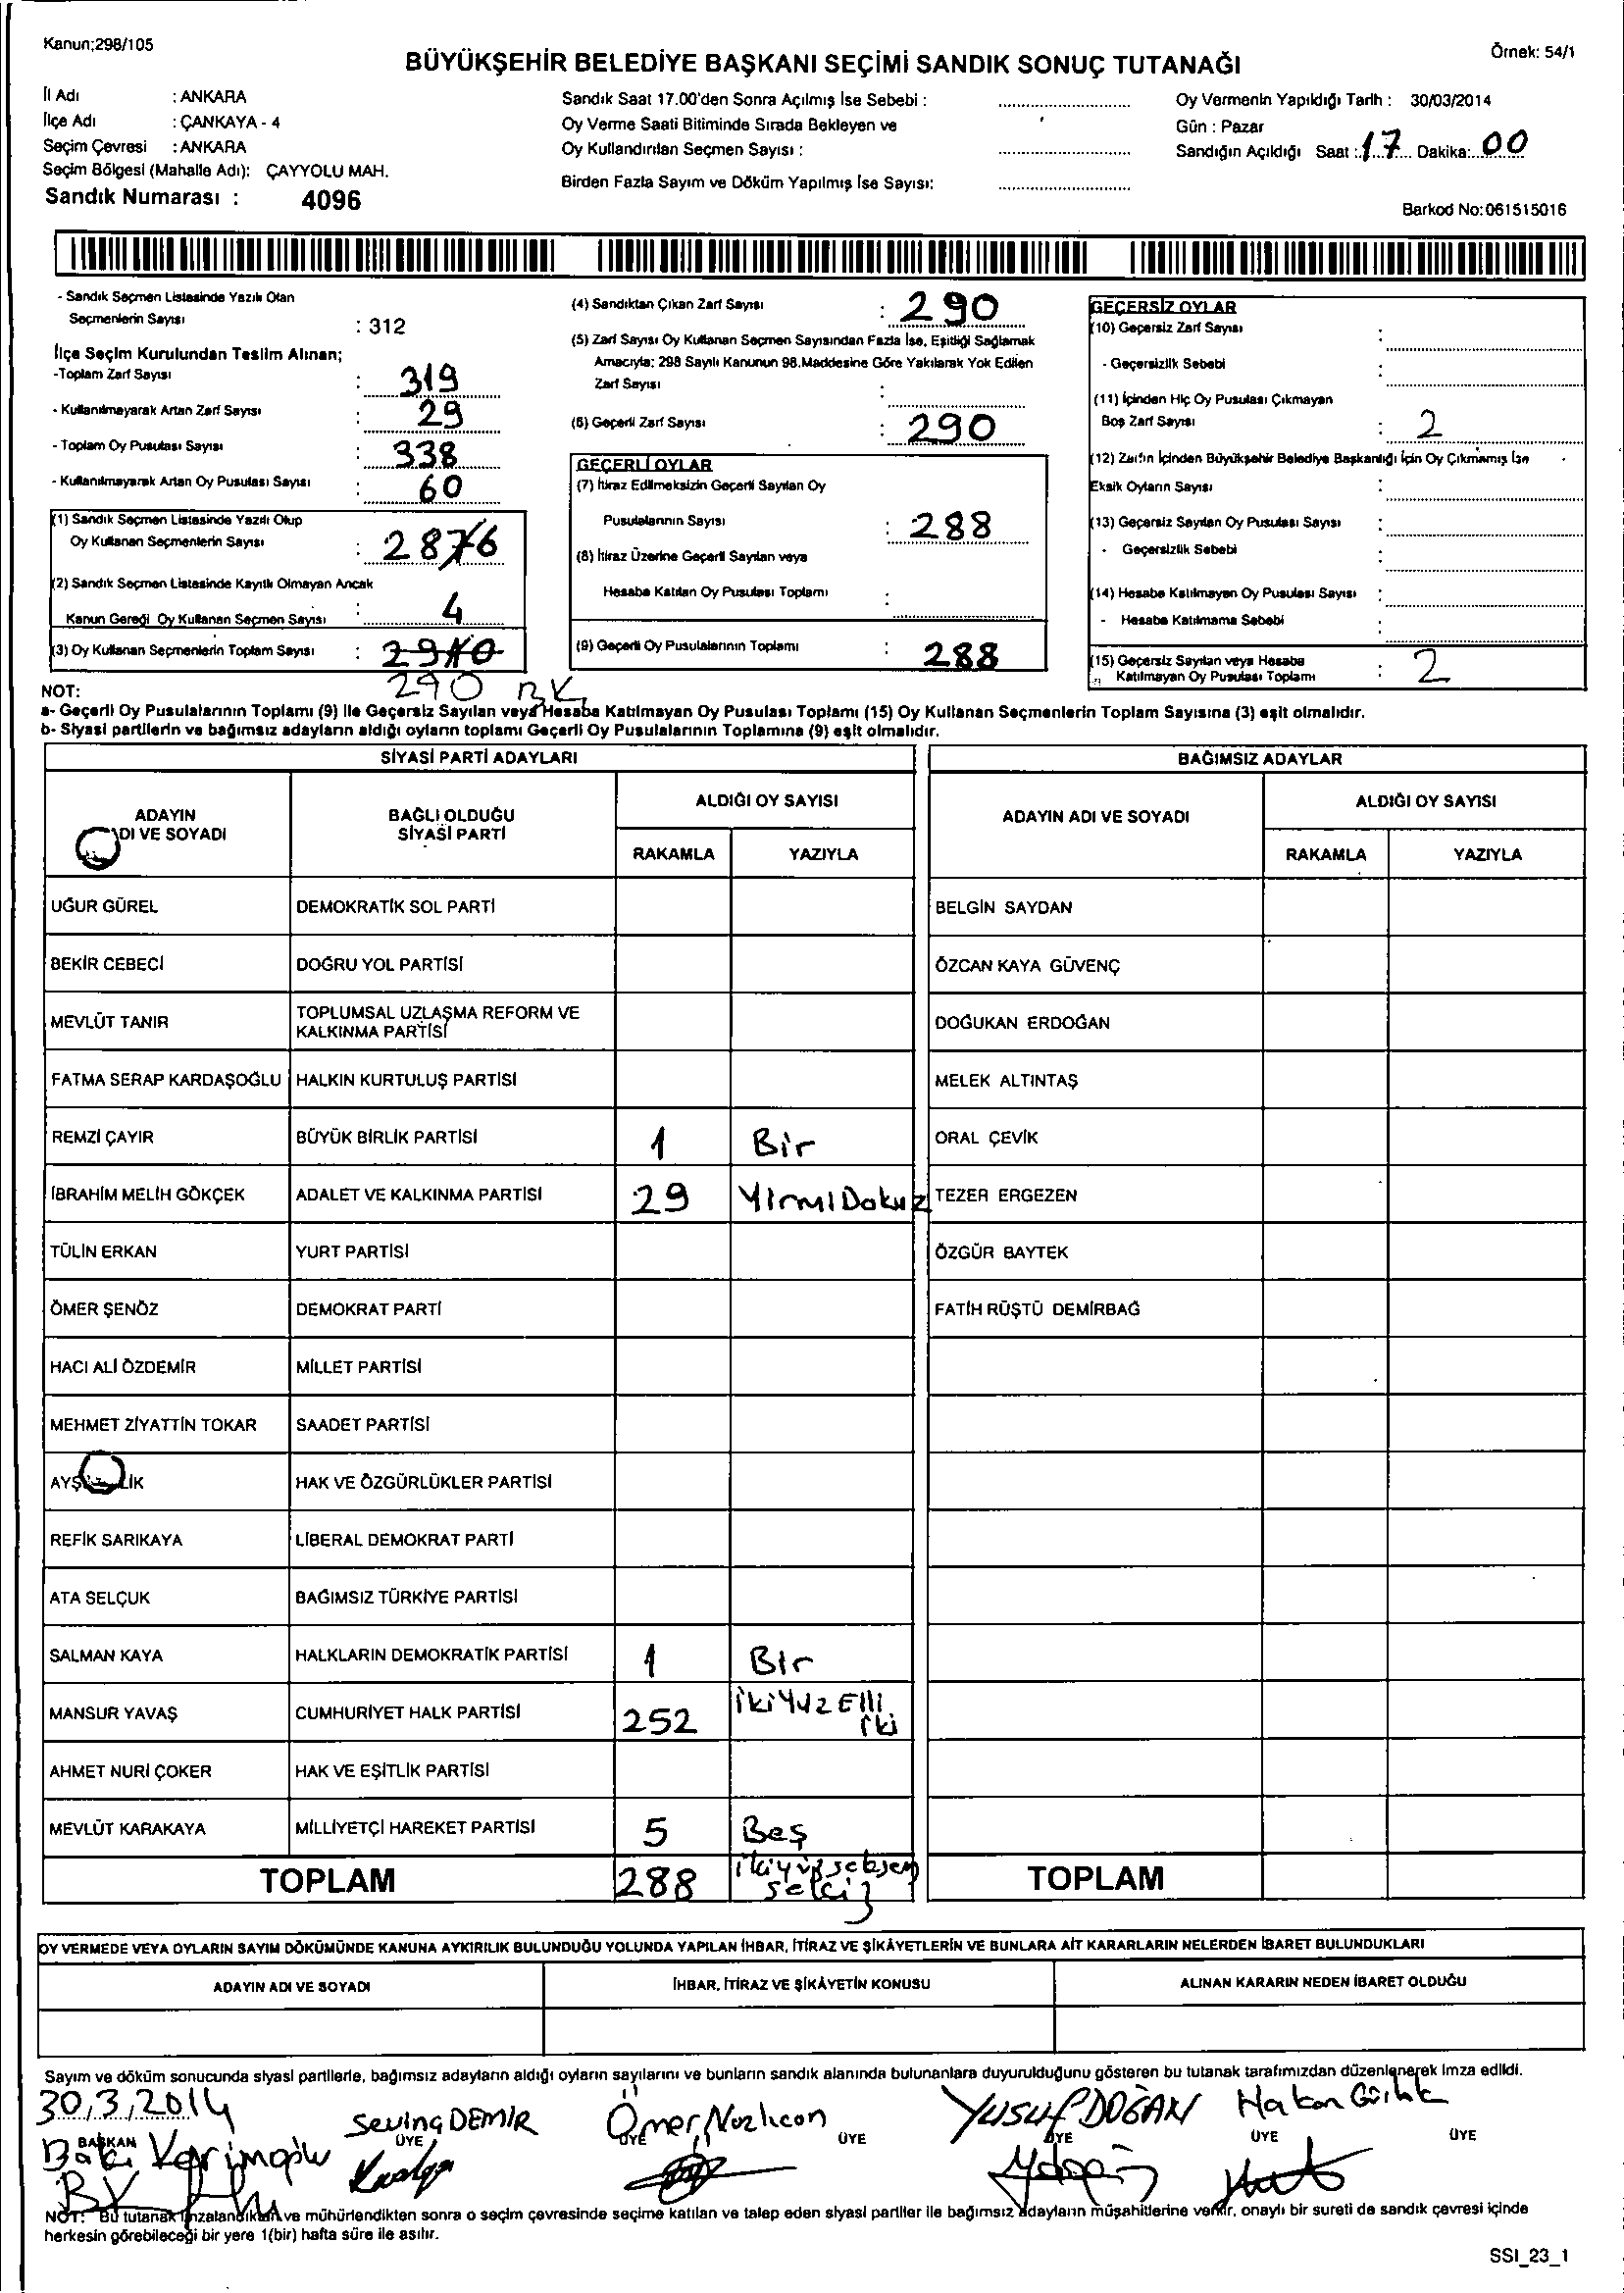 Kanun;298/105
Örnek: 54/1
BÜYÜKŞEHİR BELEDİYE BAŞKANI SEÇİMİ SANDIK SONUÇ TUTANAĞI
İl Adı : ANKARA
İlçe Adı : ÇANKAYA - 4
Seçim Çevresi : ANKARA
Seçim Bölgesi (Mahalle Adı): ÇAYYOLU MAH.
Sandık Numarası : 4096
Sandık Saat 17.00'den Sonra Açılmış İse Sebebi :
Oy Verme Saati Bitiminde Sırada Bekleyen ve
Oy Kullandırılan Seçmen Sayısı :
Birden Fazla Sayım ve Döküm Yapılmış İse Sayısı:
Oy Vermenin Yapıldığı Tarih : 30/03/2014
Gün : Pazar
Sandığın Açıldığı Saat : 17 Dakika: 00
Barkod No:061515016
- Sandık Seçmen Listesinde Yazılı Olan
Seçmenlerin Sayısı : 312
İlçe Seçim Kurulundan Teslim Alınan;
-Toplam Zarf Sayısı : 319
- Kullanılmayarak Artan Zarf Sayısı : 29
- Toplam Oy Pusulası Sayısı : 338
- Kullanılmayarak Artan Oy Pusulası Sayısı : 60
(1) Sandık Seçmen Listesinde Yazılı Olup
Oy Kullanan Seçmenlerin Sayısı : 286
(2) Sandık Seçmen Listesinde Kayıtlı Olmayan Ancak
Kanun Gereği Oy Kullanan Seçmen Sayısı : 4
(3) Oy Kullanan Seçmenlerin Toplam Sayısı :
290 BK
(4) Sandıktan Çıkan Zarf Sayısı : 290
(5) Zarf Sayısı Oy Kullanan Seçmen Sayısından Fazla İse, Eşitliği Sağlamak
Amacıyla; 298 Sayılı Kanunun 98.Maddesine Göre Yakılarak Yok Edilen
Zarf Sayısı :
(6) Geçerli Zarf Sayısı : 290
GEÇERLİ OYLAR
(7) İtiraz Edilmeksizin Geçerli Sayılan Oy
Pusulalarının Sayısı : 288
(8) İtiraz Üzerine Geçerli Sayılan veya
Hesaba Katılan Oy Pusulası Toplamı :
(9) Geçerli Oy Pusulalarının Toplamı : 288
GEÇERSİZ OYLAR
(10) Geçersiz Zarf Sayısı :
- Geçersizlik Sebebi :
(11) İçinden Hiç Oy Pusulası Çıkmayan
Boş Zarf Sayısı : 2
(12) Zarfın İçinden Büyükşehir Belediye Başkanlığı İçin Oy Çıkmamış İse
Eksik Oyların Sayısı :
(13) Geçersiz Sayılan Oy Pusulası Sayısı :
- Geçersizlik Sebebi :
(14) Hesaba Katılmayan Oy Pusulası Sayısı :
- Hesaba Katılmama Sebebi :
(15) Geçersiz Sayılan veya Hesaba
Katılmayan Oy Pusulası Toplamı : 2
NOT:
a- Geçerli Oy Pusulalarının Toplamı (9) ile Geçersiz Sayılan veya Hesaba Katılmayan Oy Pusulası Toplamı (15) Oy Kullanan Seçmenlerin Toplam Sayısına (3) eşit olmalıdır.
b- Siyasi partilerin ve bağımsız adayların aldığı oyların toplamı Geçerli Oy Pusulalarının Toplamına (9) eşit olmalıdır.
SİYASİ PARTİ ADAYLARI
ADAYIN
ADI VE SOYADI
BAĞLI OLDUĞU
SİYASİ PARTİ
ALDIĞI OY SAYISI
RAKAMLA YAZIYLA
UĞUR GÜREL DEMOKRATİK SOL PARTİ
BEKİR CEBECİ DOĞRU YOL PARTİSİ
MEVLÜT TANIR TOPLUMSAL UZLAŞMA REFORM VE
KALKINMA PARTİSİ
FATMA SERAP KARDAŞOĞLU HALKIN KURTULUŞ PARTİSİ
REMZİ ÇAYIR BÜYÜK BİRLİK PARTİSİ 1 Bir
İBRAHİM MELİH GÖKÇEK ADALET VE KALKINMA PARTİSİ 29 YirmiDokuz
TÜLİN ERKAN YURT PARTİSİ
ÖMER ŞENÖZ DEMOKRAT PARTİ
HACI ALİ ÖZDEMİR MİLLET PARTİSİ
MEHMET ZİYATTİN TOKAR SAADET PARTİSİ
HAK VE ÖZGÜRLÜKLER PARTİSİ
REFİK SARIKAYA LİBERAL DEMOKRAT PARTİ
ATA SELÇUK BAĞIMSIZ TÜRKİYE PARTİSİ
SALMAN KAYA HALKLARIN DEMOKRATİK PARTİSİ 1 Bir
MANSUR YAVAŞ CUMHURİYET HALK PARTİSİ 252 ikiYuz Elli
iki
AHMET NURİ ÇOKER HAK VE EŞİTLİK PARTİSİ
MEVLÜT KARAKAYA MİLLİYETÇİ HAREKET PARTİSİ 5 Beş
TOPLAM 288 ikiyüzseksen
sekiz
BAĞIMSIZ ADAYLAR
ADAYIN ADI VE SOYADI
ALDIĞI OY SAYISI
RAKAMLA YAZIYLA
BELGİN SAYDAN
ÖZCAN KAYA GÜVENÇ
DOĞUKAN ERDOĞAN
MELEK ALTINTAŞ
ORAL ÇEVİK
TEZER ERGEZEN
ÖZGÜR BAYTEK
FATİH RÜŞTÜ DEMİRBAĞ
TOPLAM
OY VERMEDE VEYA OYLARIN SAYIM DÖKÜMÜNDE KANUNA AYKIRILIK BULUNDUĞU YOLUNDA YAPILAN İHBAR, İTİRAZ VE ŞİKÂYETLERİN VE BUNLARA AİT KARARLARIN NELERDEN İBARET BULUNDUKLARI
ADAYIN ADI VE SOYADI İHBAR, İTİRAZ VE ŞİKÂYETİN KONUSU ALINAN KARARIN NEDEN İBARET OLDUĞU
Sayım ve döküm sonucunda siyasi partilerle, bağımsız adayların aldığı oyların sayılarını ve bunların sandık alanında bulunanlara duyurulduğunu gösteren bu tutanak tarafımızdan düzenlenerek imza edildi.
30/3/2014
BAŞKAN ÜYE ÜYE ÜYE ÜYE ÜYE ÜYE
Baki Kerimoğlu Sevinç DEMİR Ömer Nozlıcan YUSUF DOĞAN Hakan
BK
NOT: Bu tutanak imzalandıktan ve mühürlendikten sonra o seçim çevresinde seçime katılan ve talep eden siyasi partiler ile bağımsız adayların müşahitlerine verilir, onaylı bir sureti de sandık çevresi içinde
herkesin görebileceği bir yere 1(bir) hafta süre ile asılır.
SSI_23_1